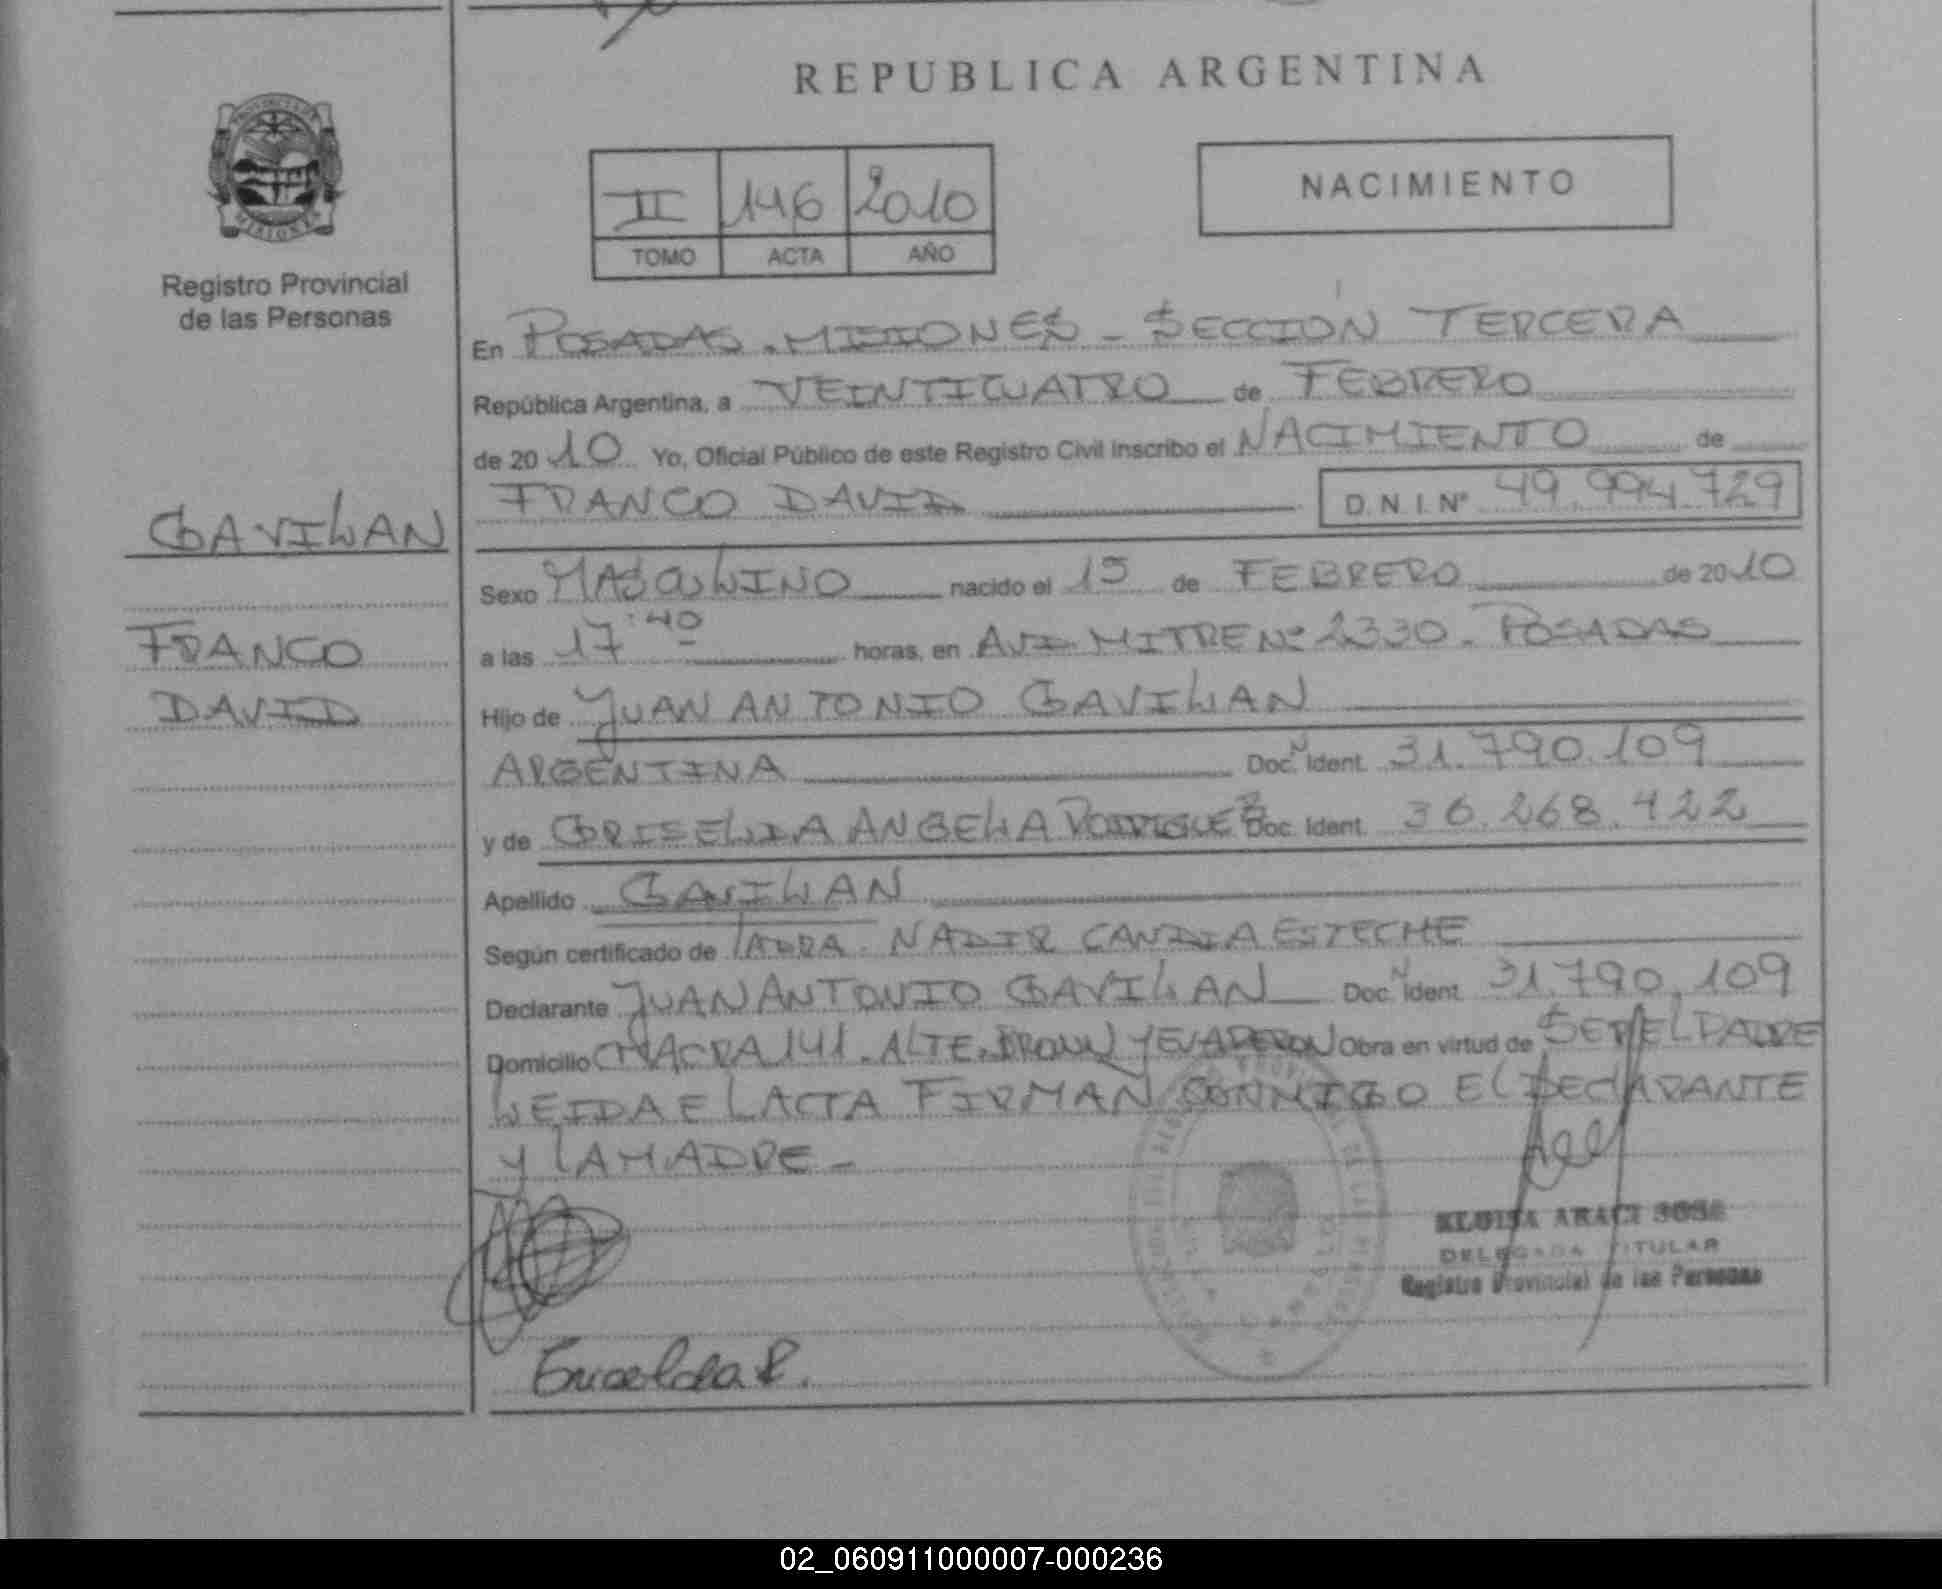 REPUBLICA ARGENTINA
II 146 2010
TOMO ACTA AÑO
NACIMIENTO
Registro Provincial
de las Personas
GAVILAN
FRANCO
DAVID
En POSADAS. MISIONES - SECCION TERCERA
República Argentina, a VEINTICUATRO de FEBRERO
de 2010 Yo, Oficial Público de este Registro Civil Inscribo el NACIMIENTO de
FRANCO DAVID D.N.I. Nº 49.994.729
Sexo MASCULINO nacido el 15 de FEBRERO de 2010
a las 17:40 horas, en AVD MITRE Nº 2330. POSADAS
Hijo de JUAN ANTONIO GAVILAN
ARGENTINA Doc. Ident. 31.790.109
y de GRISELDA ANGELA RODRIGUEZ Doc. Ident. 36.268.422
Apellido GAVILAN
Según certificado de NADIR CANDIA ESTECHE
Declarante JUAN ANTONIO GAVILAN Doc. Ident. 31.790.109
Domicilio CHACRA 141. ALTE. BROWN Y EVA PERON Obra en virtud de SER EL PADRE
LEIDA EL ACTA FIRMAN CONMIGO EL DECLARANTE
Y LA MADRE -
ELOISA ARACI
DELEGADA TITULAR
Registro Provincial de las Personas
Griselda R.
02_060911000007-000236